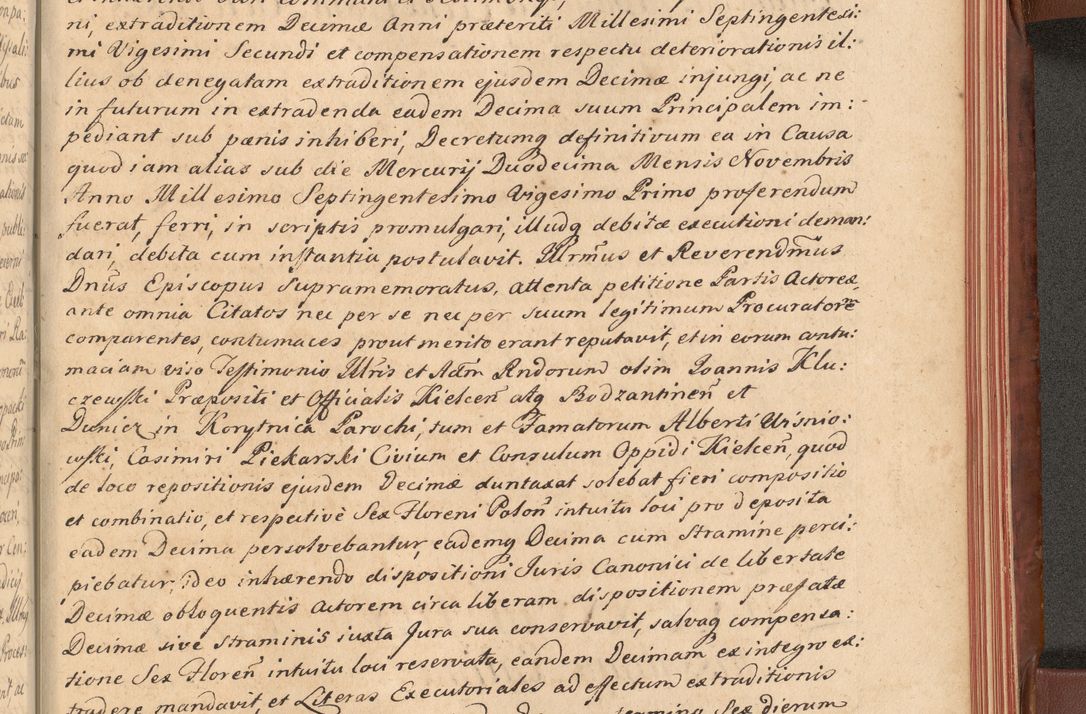 ni, extraditionem Decimæ Anni præteriti Millesimi Septingentesi:
mi Vigesimi Secundi et compensationem respectu deteriorationis il:
lius ob denegatam extraditionem ejusdem Decimæ injungi, ac ne
in futurum in extradenda eadem Decima suum Principalem im:
pediant sub pænis inhiberi, Decretumq definitivum ea in Causa
quod iam alias sub die Mercurij Duodecima Mensis Novembris
Anno Millesimo Septingentesimo Vigesimo Primo proferendum
fuerat, ferri, in scriptis promulgari, illudq debitæ executioni deman:
dari, debita cum instantia postulavit. Illrm̃us et Reverendm̃us
Dnũs Episcopus supramemoratus, attenta petitione Partis Actoreæ,
ante omnia Citatos nec per se nec per suum legitimum Procuratorem
comparentes, contumaces prout merito erant reputavit, et in eorum contu:
maciam viso Testimonio Illris et Adm̃ Rndorum olim Joannis Klu:
czewski Præpositi et Officialis Kielceñ atq Bodzantineñ et
Duniez in Korytnica Parochi, tum et Famatorum Alberti Urśnio:
wski, Casimiri Piekarski Civium et Consulum Oppidi Kielceñ, quod
de loco repositionis ejusdem Decimæ duntaxat solebat fieri compositio
et combinatio, et respectivè Sex Floreni Poloñ intuitu loci pro deposita
eadem Decima persolvebantur, eademq Decima cum Stramine perci:
piebatur, ideo inhærendo dispositioni Juris Canonici de libertate
Decimæ obloquentis Actorem circa liberam dispositionem præfatæ
Decimæ sive straminis iuxta Jura sua conservavit, salvaq compensa:
tione Sex Floreñ intuitu loci reservata, eandem Decimam ex integro ex:
tradere mandavit, et Literas Executoriales ad effectum extraditionis
Sex dierum